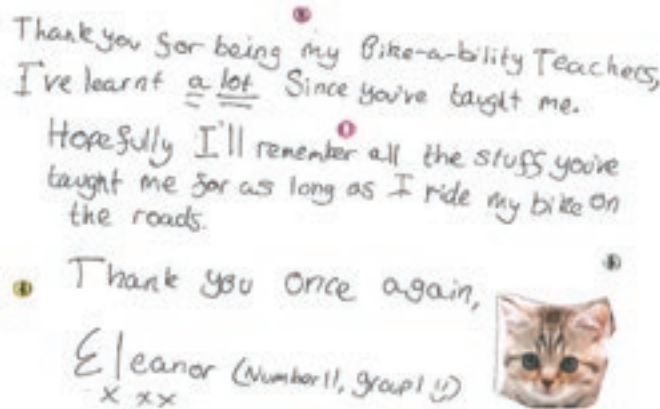 Thank you for being my Bike-a-bility Teachers,
I've learnt a lot Since you've taught me.
Hopefully I'll remember all the stuff you've
taught me for as long as I ride my bike on
the roads.
Thank you once again,
Eleanor (Number 11, group 1 :))
x xx